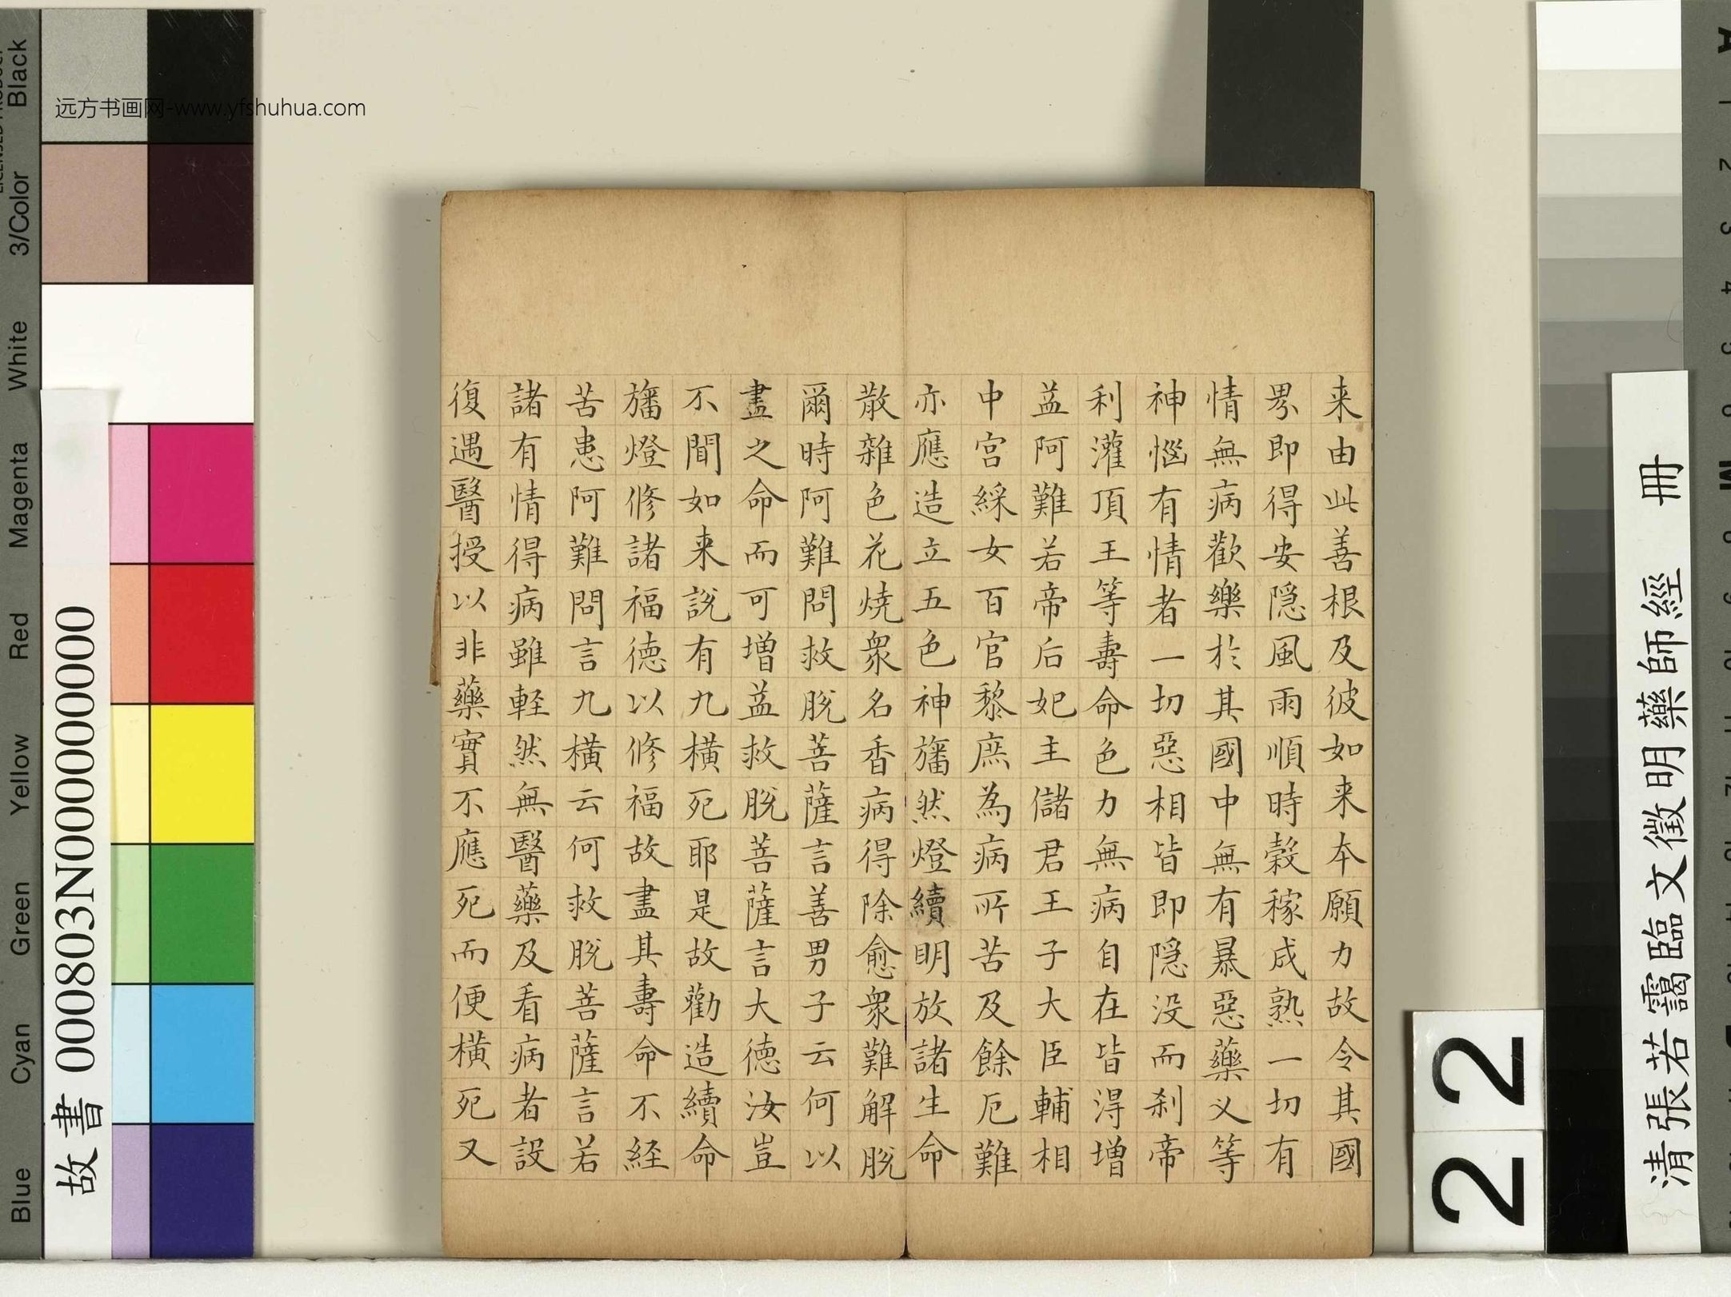 来由此善根及彼如来本願力故令其國
界即得安隱風雨順時穀稼成熟一切有
情無病歡樂於其國中無有暴惡藥义等
神惱有情者一切惡相皆即隱没而刹帝
利灌頂王等壽命色力無病自在皆得增
益阿難若帝后妃主儲君王子大臣輔相
中宮綵女百官黎庶為病所苦及餘厄難
亦應造立五色神旛然燈續明放諸生命
散雜色花燒衆名香病得除愈衆難解脫
爾時阿難問救脫菩薩言善男子云何以
盡之命而可增益救脫菩薩言大德汝豈
不聞如来說有九橫死耶是故勸造續命
旛燈修諸福德以修福故盡其壽命不経
苦患阿難問言九橫云何救脫菩薩言若
諸有情得病雖軽然無醫藥及看病者設
復遇醫授以非藥實不應死而便橫死又
远方书画网-www.yfshuhua.com
Black
3/Color
White
Magenta
Red
Yellow
Green
Cyan
Blue
故書 000803N000000000
22
清張若靄臨文徵明藥師經 冊